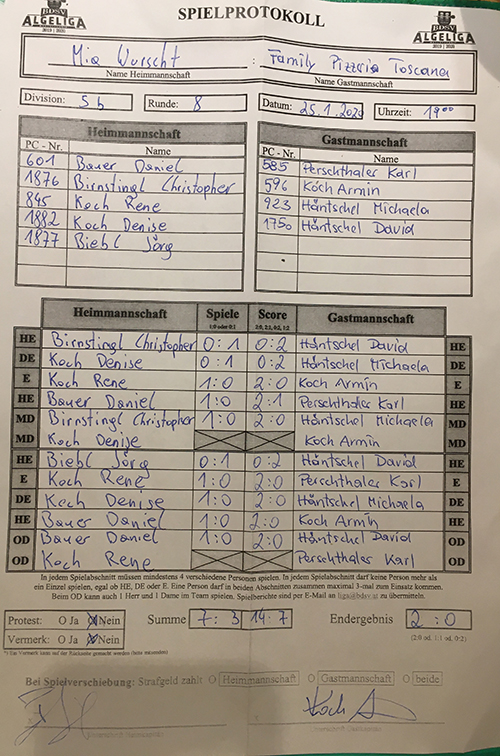 BDSV
ALGELIGA
2019 | 2020
SPIELPROTOKOLL
BDSV
ALGELIGA
2019 | 2020
Mia Wurscht : Family Pizzeria Toscana
Name Heimmannschaft Name Gastmannschaft
Division: 5b Runde: 8 Datum: 25.1.2020 Uhrzeit: 1900
Heimmannschaft Gastmannschaft
PC - Nr. Name PC - Nr. Name
601 Bauer Daniel 585 Perschthaler Karl
1876 Birnstingl Christopher 596 Koch Armin
845 Koch Rene 923 Häntschel Michaela
1882 Koch Denise 1750 Häntschel David
1877 Biebl Jörg
Heimmannschaft Spiele Score Gastmannschaft
1:0 oder 0:1 2:0, 2:1, 0:2, 1:2
HE Birnstingl Christopher 0:1 0:2 Häntschel David HE
DE Koch Denise 0:1 0:2 Häntschel Michaela DE
E Koch Rene 1:0 2:0 Koch Armin E
HE Bauer Daniel 1:0 2:1 Perschthaler Karl HE
MD Birnstingl Christopher 1:0 2:0 Häntschel Michaela MD
MD Koch Denise Koch Armin MD
HE Biebl Jörg 0:1 0:2 Häntschel David HE
E Koch Rene 1:0 2:0 Perschthaler Karl E
DE Koch Denise 1:0 2:0 Häntschel Michaela DE
HE Bauer Daniel 1:0 2:0 Koch Armin HE
OD Bauer Daniel 1:0 2:0 Häntschel David OD
OD Koch Rene Perschthaler Karl OD
In jedem Spielabschnitt müssen mindestens 4 verschiedene Personen spielen. In jedem Spielabschnitt darf keine Person mehr als
ein Einzel spielen, egal ob HE, DE oder E. Eine Person darf in beiden Abschnitten zusammen maximal 3-mal zum Einsatz kommen.
Beim OD kann auch 1 Herr und 1 Dame im Team spielen. Spielberichte sind per E-Mail an liga@bdsv.at zu übermitteln.
Protest: O Ja Nein Summe 7:3 14:7 Endergebnis 2:0
Vermerk: O Ja Nein (2:0 od. 1:1 od. 0:2)
*) Ein Vermerk kann auf der Rückseite gemacht werden (bitte ankreuzen)
Bei Spielverschiebung: Strafgeld zahlt O Heimmannschaft O Gastmannschaft O beide
Koch
Unterschrift Heimmannschaft Unterschrift Gastmannschaft